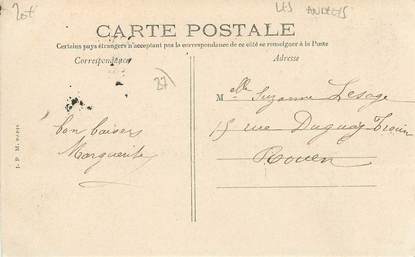 LES ANDELYS
CARTE POSTALE
Certains pays étrangers n'acceptant pas la correspondance de ce côté se renseigner à la Poste
Correspondance
Adresse
27
Melle Suzanne Lesage
15 rue Duguay Trouin
Rouen
bon baisers
Marguerite